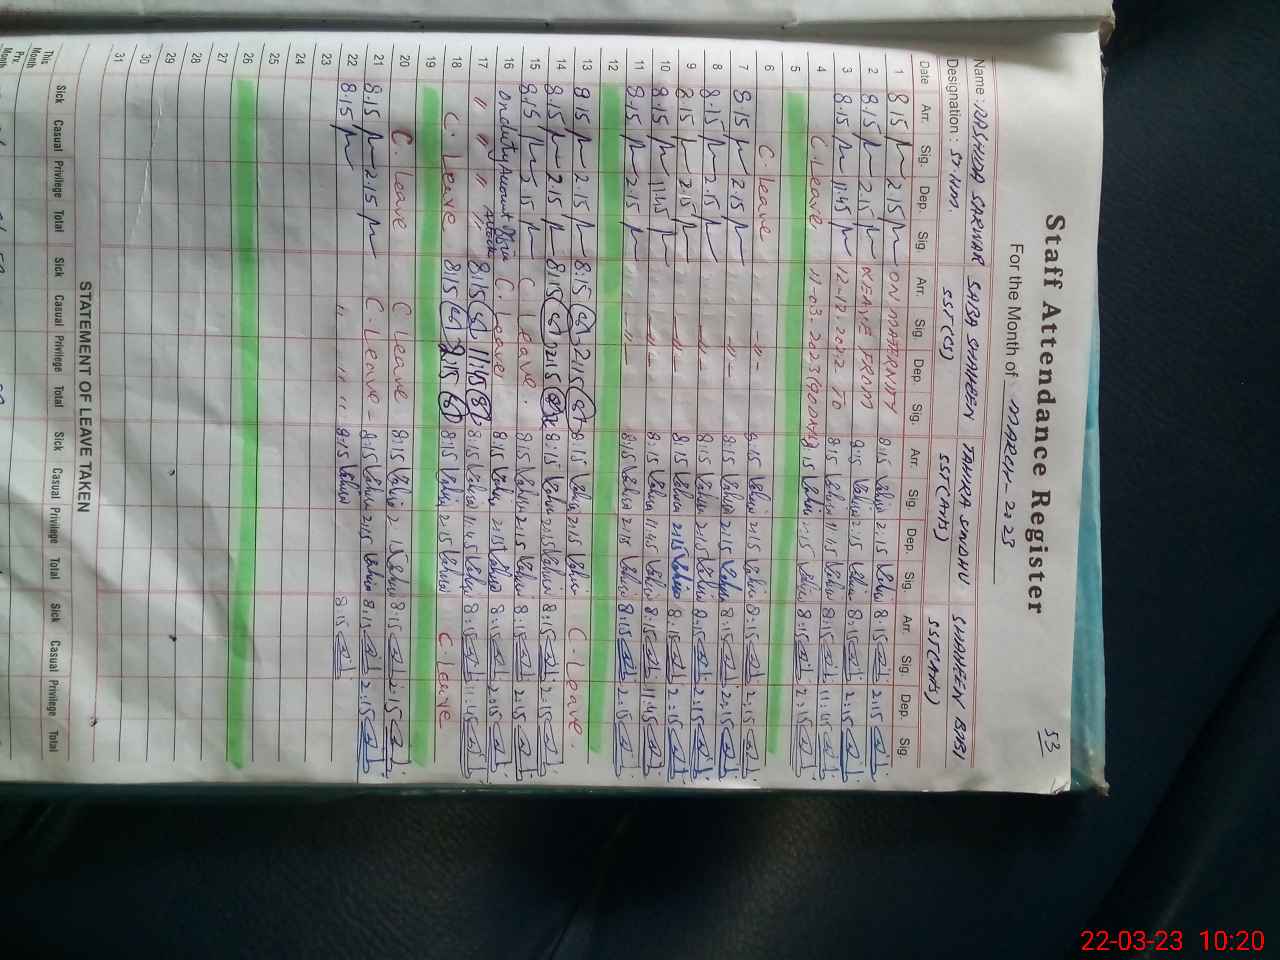 53
Staff Attendance Register
For the Month of MARCH-2023
Name: RASHIDA SARWAR SABA SHAHEEN TAHIRA SINDHU SHAHEEN BIBI
Designation: SST(CS) SST(Arts) SST(Arts)
Date Arr. Sig. Dep. Sig. Arr. Sig. Dep. Sig. Arr. Sig. Dep. Sig. Arr. Sig. Dep. Sig.
1 8:15 2:15 ON MATERNITY 8:15 2:15 8:15 2:15
2 8:15 2:15 LEAVE FROM 8:15 2:15 8:15 2:15
3 8:15 11:45 12-12-2022 TO 8:15 11:45 8:15 11:45
4 C. Leave 11-03-2023 8:15 2:15 8:15 2:15
5
6 C. Leave -"- 8:15 2:15 8:15 2:15
7 8:15 2:15 -"- 8:15 2:15 8:15 2:15
8 8:15 2:15 -"- 8:15 2:15 8:15 2:15
9 8:15 2:15 -"- 8:15 2:15 8:15 2:15
10 8:15 11:45 -"- 8:15 11:45 8:15 11:45
11 8:15 2:15 -"- 8:15 2:15 8:15 2:15
12
13 8:15 2:15 8:15 2:15 8:15 2:15 C. Leave.
14 8:15 2:15 8:15 2:15 8:15 2:15 8:15 2:15
15 8:15 2:15 C Leave. 8:15 2:15 8:15 2:15
16 On duty Account Office C. Leave 8:15 2:15 8:15 2:15
17 " " " " 8:15 11:15 8:15 11:45 8:15 11:45
18 C. Leave 8:15 2:15 8:15 2:15 C. Leave
19
20 C. Leave C Leave 8:15 2:15 8:15 2:15
21 8:15 2:15 C. Leave - 8:15 2:15 8:15 2:15
22 8:15 " " " 8:15 8:15
23
24
25
26
27
28
29
30
31
STATEMENT OF LEAVE TAKEN
Sick Casual Privilege Total Sick Casual Privilege Total Sick Casual Privilege Total Sick Casual Privilege Total
This Month
Prv. Month
22-03-23 10:20